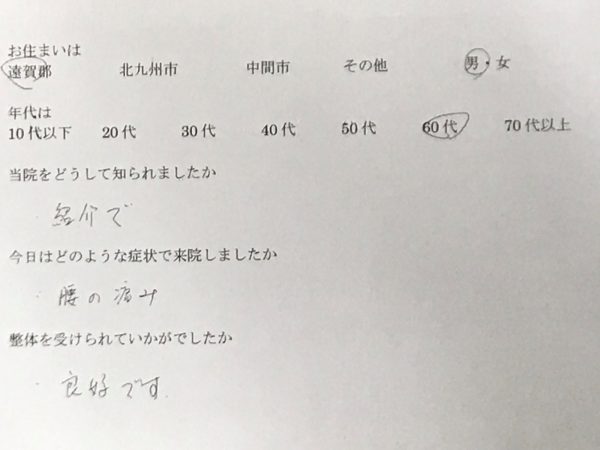 お住まいは
遠賀郡 北九州市 中間市 その他 男・女
年代は
10代以下 20代 30代 40代 50代 60代 70代以上
当院をどうして知られましたか
・紹介で
今日はどのような症状で来院しましたか
・腰の痛み
整体を受けられていかがでしたか
・良好です